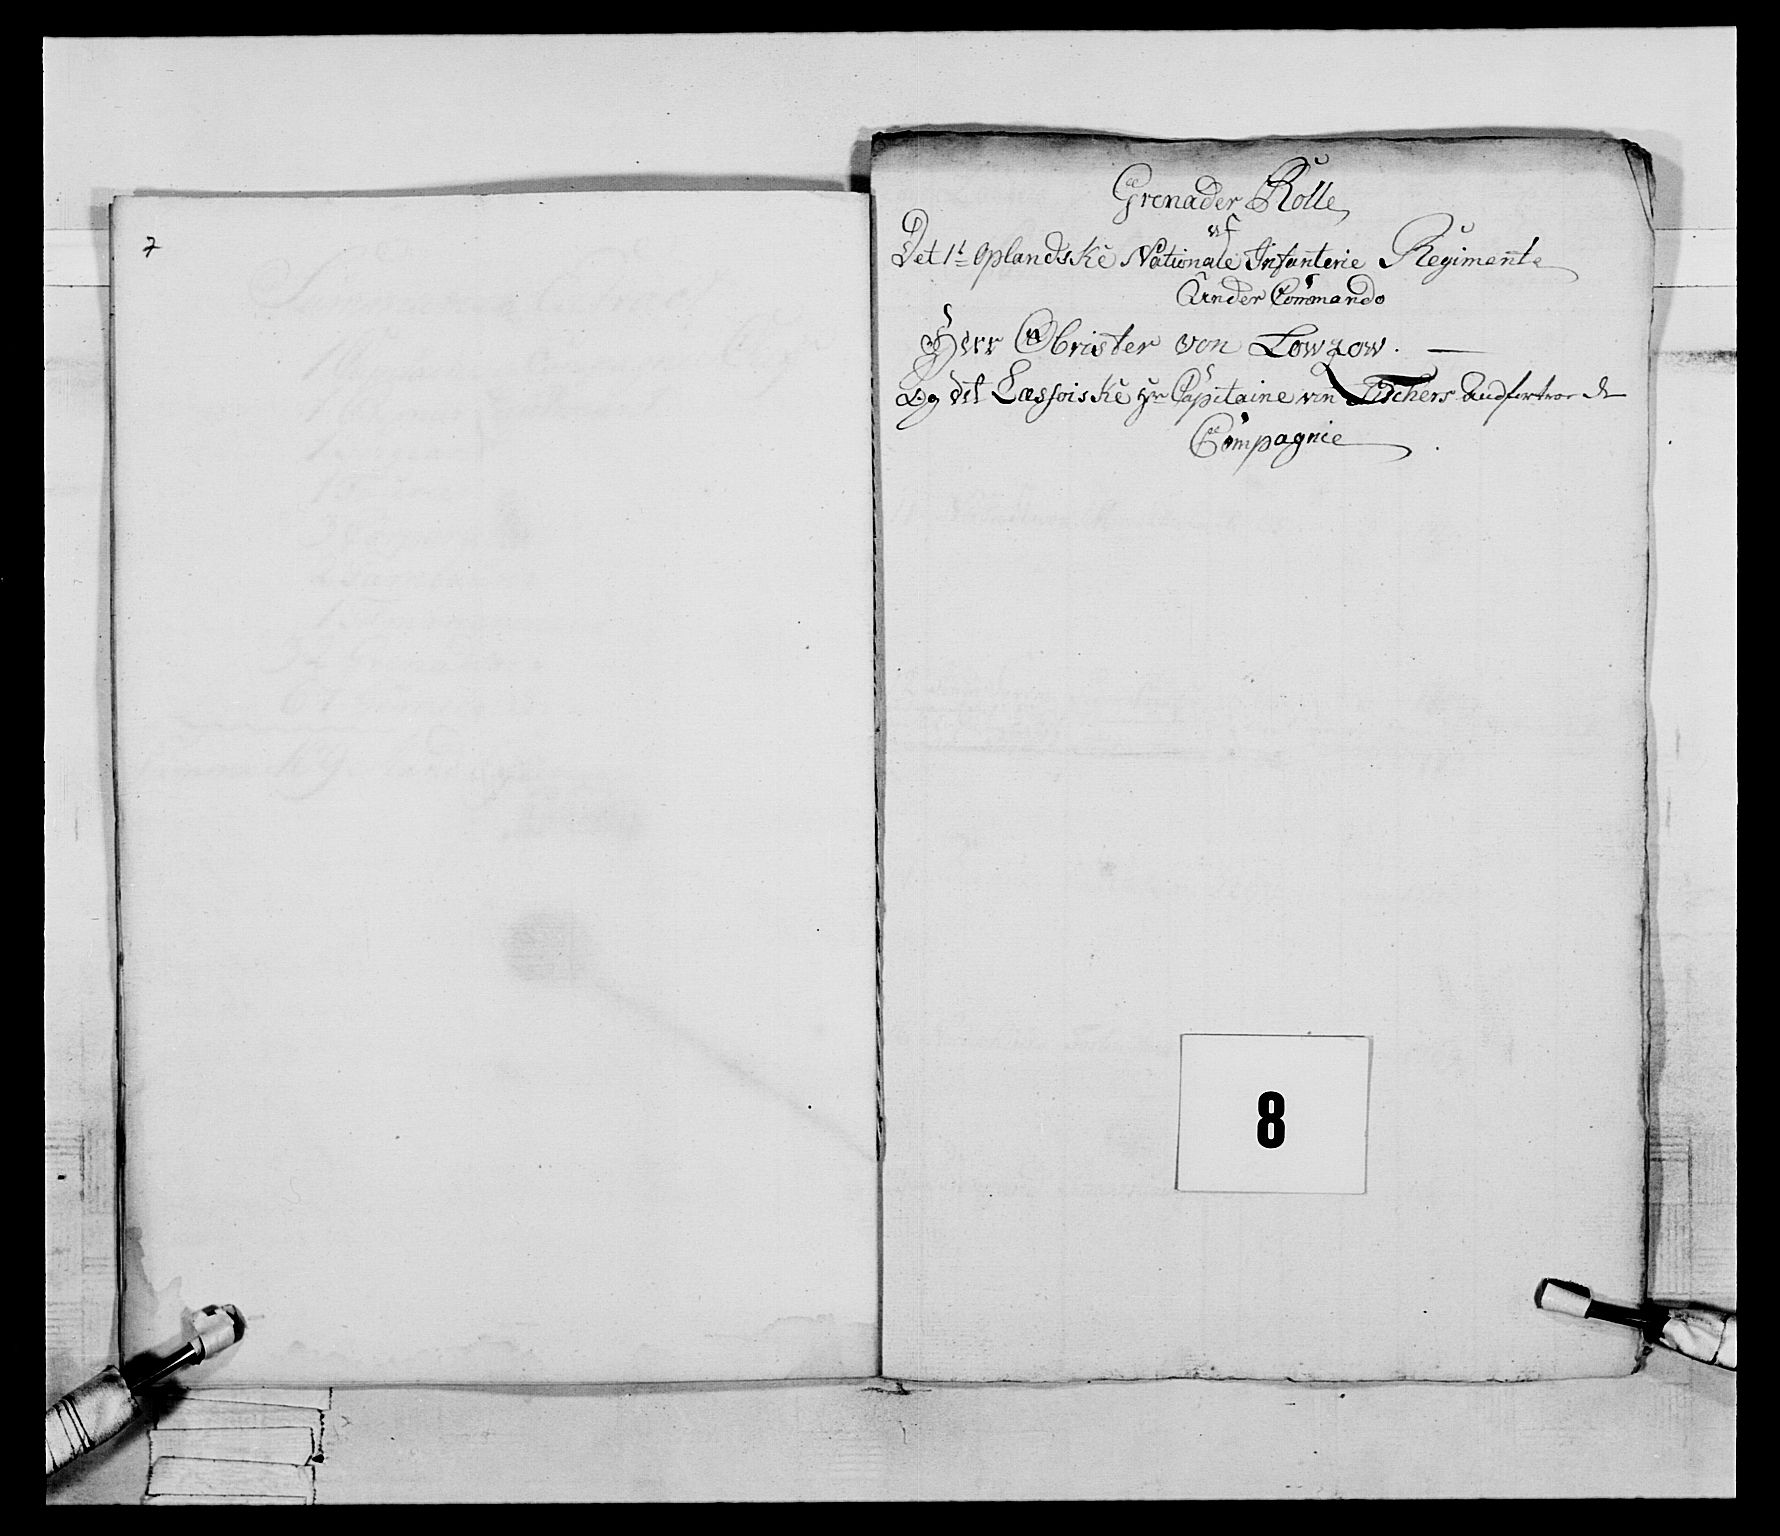 7
Grenader Rolle
af
Det 1t Oplandske Nationale Infanterie Regimente
Under Commando
Herr Obrister von Lowzow.
Og det Læssøiske Hr Capitaine von Fischers
Compagnie
8